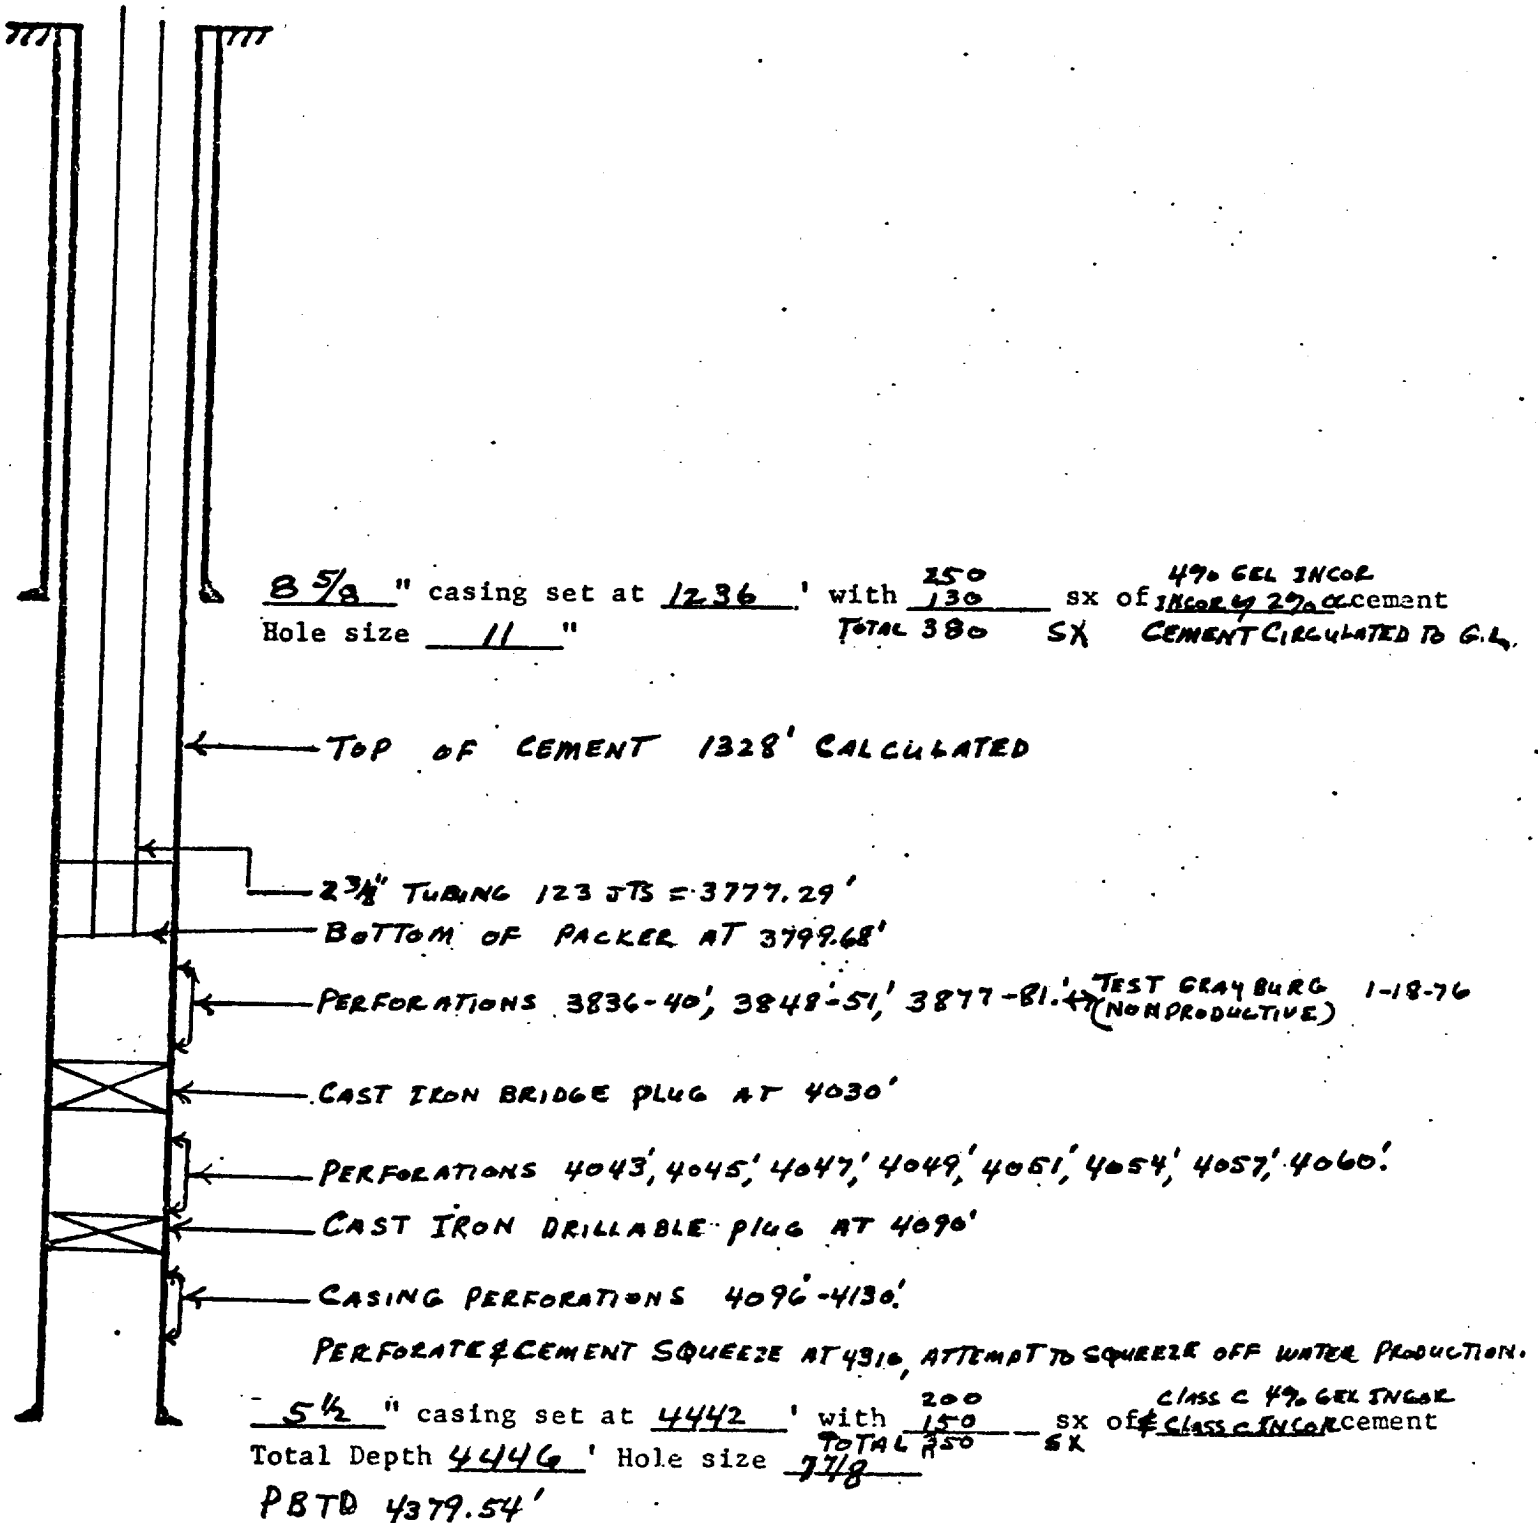 250 4% GEL INCOR
8 5/8 " casing set at 1236 ' with 130 sx of INCOR W/ 2% CC cement
Hole size 11 " TOTAL 380 SX CEMENT CIRCULATED TO G.L.
TOP OF CEMENT 1328' CALCULATED
2 3/8" TUBING 123 JTS = 3777.29'
BOTTOM OF PACKER AT 3799.68'
PERFORATIONS 3836-40', 3848'-51', 3877-81.' TEST GRAYBURG 1-18-76
(NONPRODUCTIVE)
CAST IRON BRIDGE PLUG AT 4030'
PERFORATIONS 4043', 4045', 4047', 4049', 4051', 4054', 4057', 4060'.
CAST IRON DRILLABLE PLUG AT 4090'
CASING PERFORATIONS 4096'-4130'.
PERFORATE & CEMENT SQUEEZE AT 4310, ATTEMPT TO SQUEEZE OFF WATER PRODUCTION.
200 CLASS C 4% GEL INCOR
5 1/2 " casing set at 4442 ' with 150 sx of & CLASS C INCOR cement
TOTAL 350 SX
Total Depth 4446 ' Hole size 7 7/8
PBTD 4379.54'